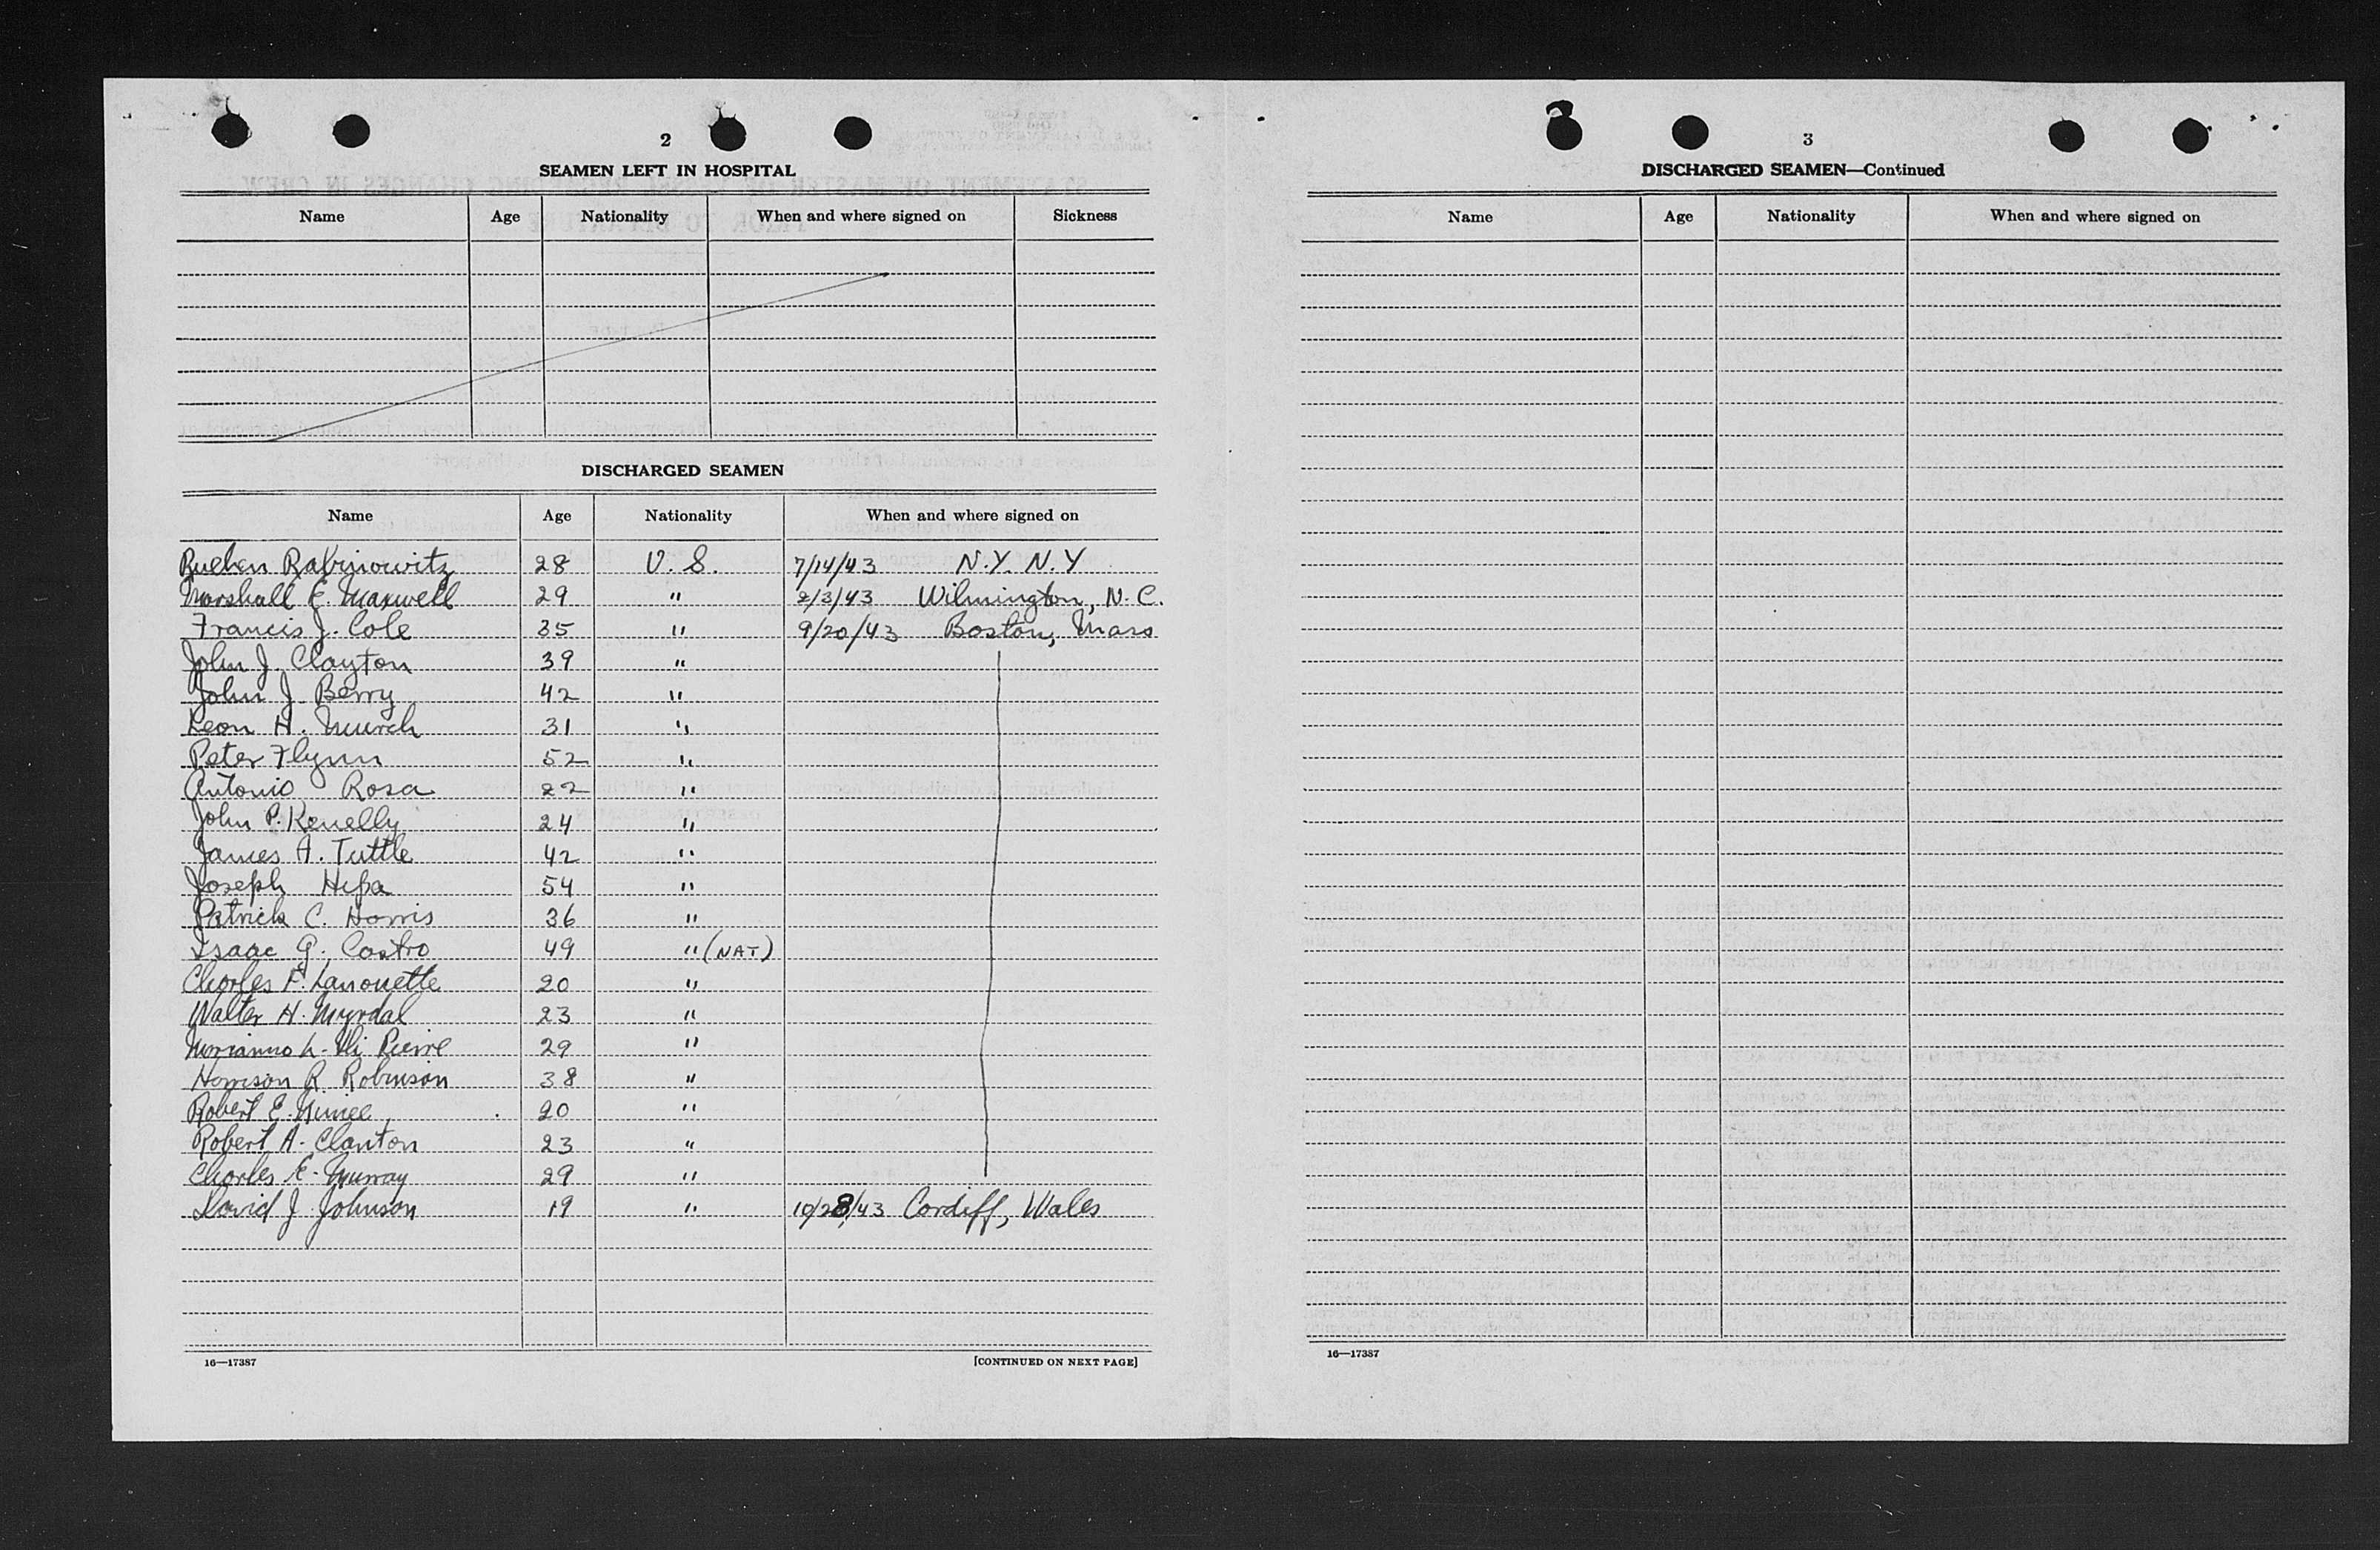 2
SEAMEN LEFT IN HOSPITAL
Name Age Nationality When and where signed on Sickness
DISCHARGED SEAMEN
Name Age Nationality When and where signed on
Rueben Rabinowitz 28 U. S. 7/14/43 N.Y. N.Y
Marshall E. Maxwell 29 " 2/3/43 Wilmington, N.C.
Francis J. Cole 35 " 9/20/43 Boston, Mass
John J. Clayton 39 "
John J. Berry 42 "
Leon H. Murch 31 "
Peter Flynn 52 "
Antonio Rosa 22 "
John P. Kenelly 24 "
James A. Tuttle 42 "
Joseph Hipa 54 "
Patrick C. Harris 36 "
Isaac G. Castro 49 " (NAT)
Charles F. Lanouette 20 "
Walter H. Myrdal 23 "
L. Di Pierre 29 "
Harrison R Robinson 38 "
Robert E. 20 "
Robert A. Clanton 23 "
Charles E. Murray 29 "
David J Johnson 19 " 10/28/43 Cardiff, Wales
16—17387 [CONTINUED ON NEXT PAGE]
3
DISCHARGED SEAMEN—Continued
Name Age Nationality When and where signed on
16—17387